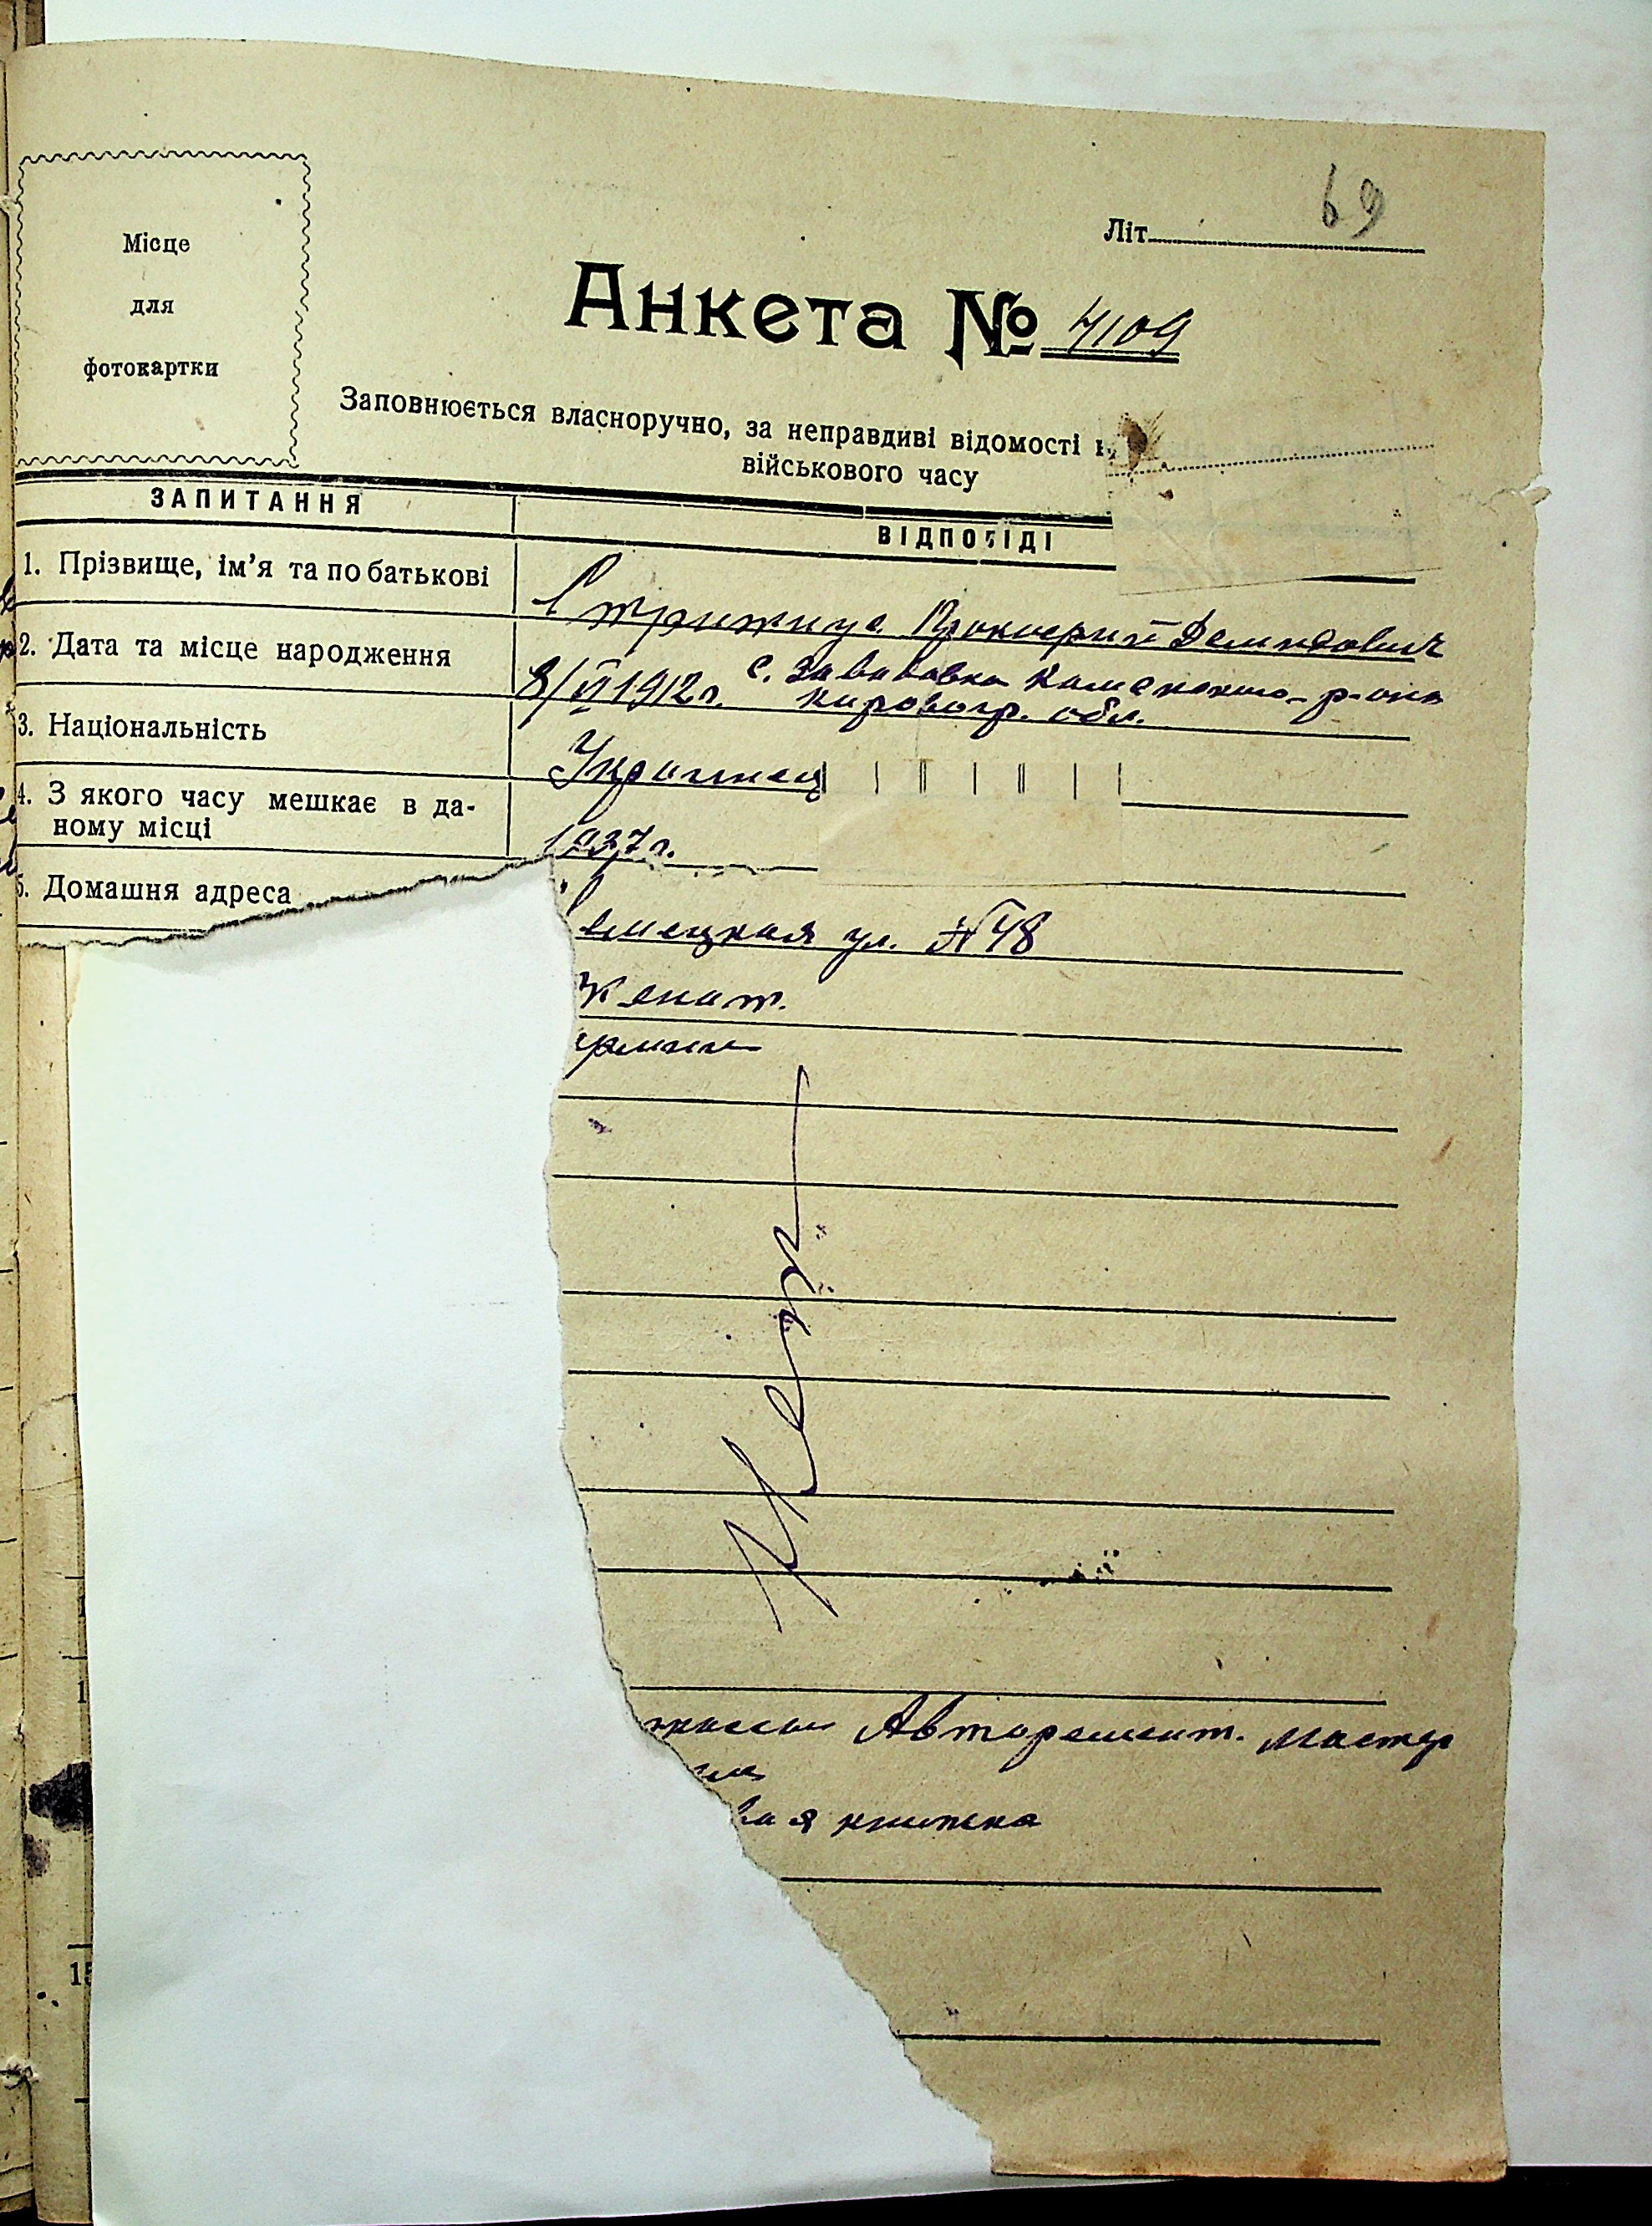 Місце
для
фотокартки
69
Літ.
Анкета № 4109
Заповнюється власноручно, за неправдиві відомості
військового часу
ЗАПИТАННЯ
ВІДПОВІДІ
1. Прізвище, ім'я та по батькові
Прокофий Демидович
2. Дата та місце народження
8/VI 1912 г. с. Каменского р-она
Кировогр. обл.
3. Національність
Украинец
4. З якого часу мешкає в да-
ному місці
1937 г.
5. Домашня адреса
мецкая ул. №48
Женат.
Авторемонт. мастер
вая книжка
15